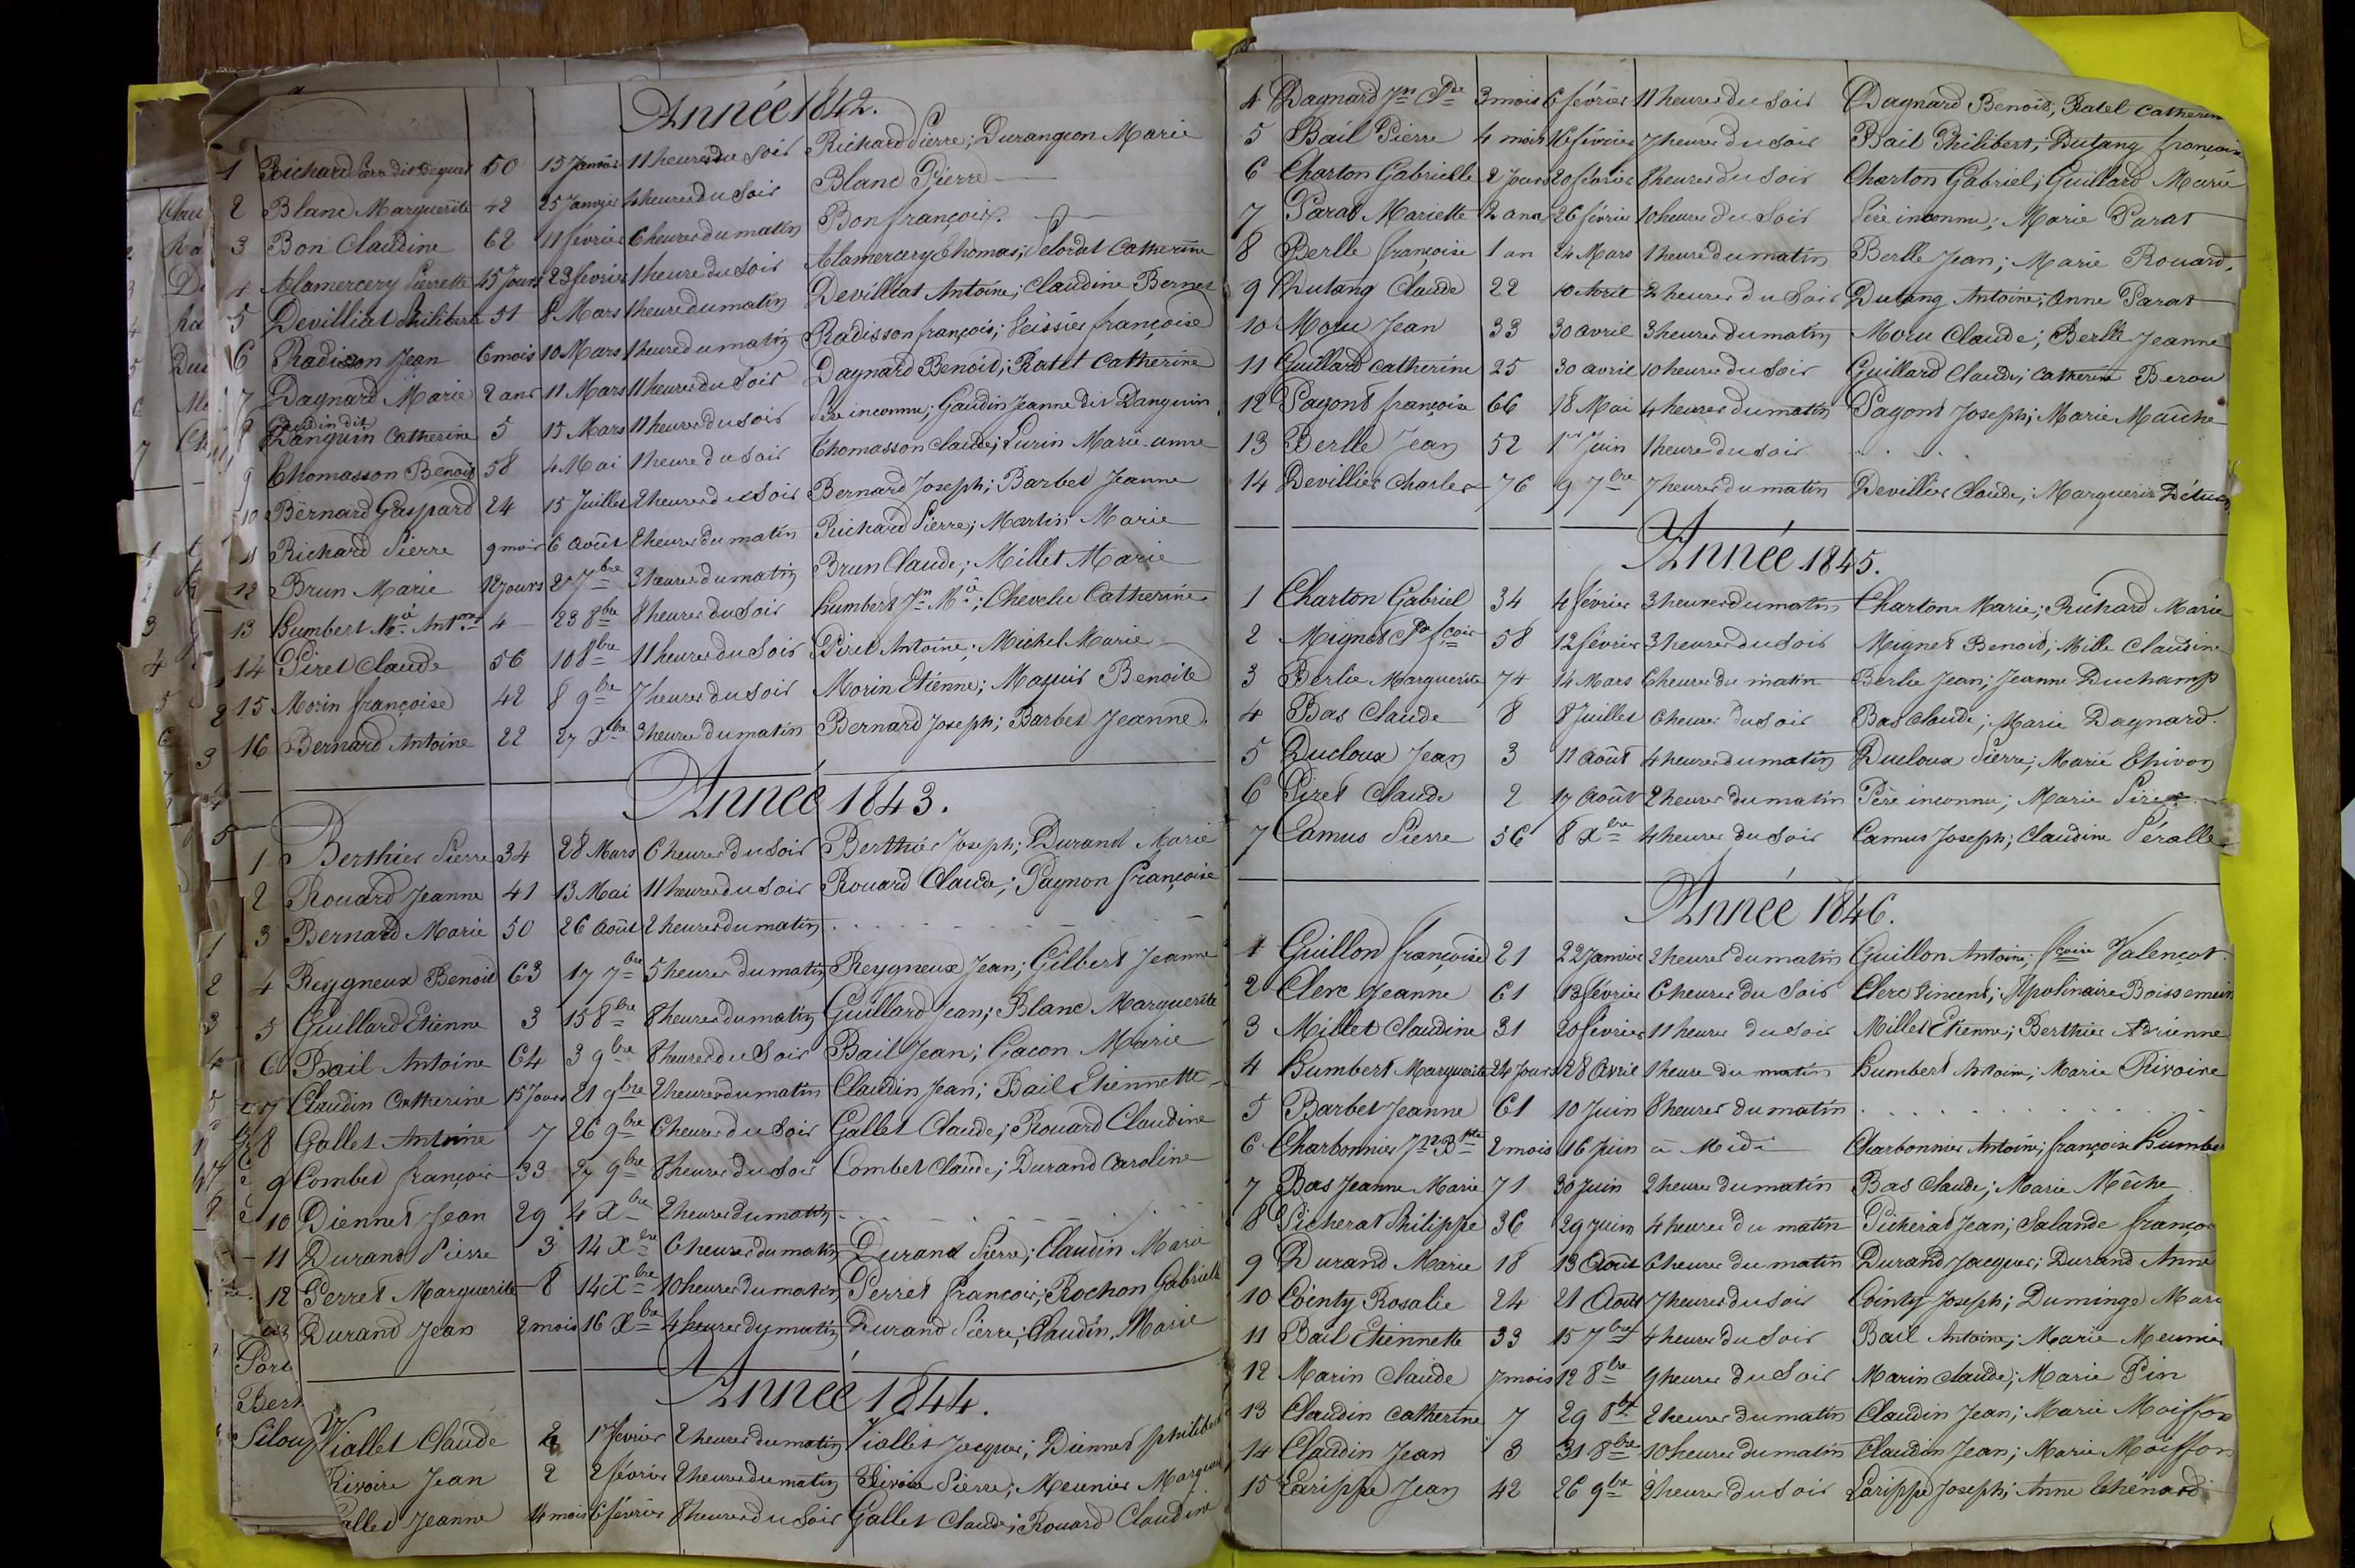 Année 1842.
1 Richard 50 15 Janvier 11 heures du Soir Richard Pierre; Durangeon Marie
2 Blanc Marguerite 42 25 Janvier 4 heures du Soir Blanc Pierre
3 Bon Claudine 62 11 février 6 heures du matin Bon françois.
4 Alamercery Pierrette 15 Jours 23 février 1 heure du Soir Alamercery Thomas; Catherine
5 Devilliat Philibert 51 8 Mars 1 heure du matin Devilliat Antoine; Claudine Bernet
6 Radisson Jean 6 mois 10 Mars 1 heure du matin Radisson françois; françoise
7 Dagnard Marie 2 ans 11 Mars 11 heures du Soir Dagnard Benoit; Ratet Catherine
8 Gaudin dit Danguin Catherine 5 15 Mars 11 heures du soir Père inconnu; Gaudin Jeanne dit Danguin
9 Thomasson Benoit 58 4 Mai 1 heure du Soir Thomasson Claude; Purin Marie-anne
10 Bernard Gaspard 24 15 Juillet 2 heures du Soir Bernard Joseph; Barbet Jeanne
11 Richard Pierre 9 mois 6 Août 2 heures du matin Richard Pierre; Martin Marie
12 Brun Marie 12 jours 2 7bre 3 heures du matin Brun Claude; Millet Marie
13 Humbert Mie Antne 4 23 8bre 8 heures du Soir Humbert Jn Mie; Chevelu Catherine
14 Piret Claude 56 10 8bre 11 heures du Soir Piret Antoine; Michel Marie
15 Morin françoise 42 8 9bre 7 heures du Soir Morin Etienne; Maguis Benoite
16 Bernard Antoine 22 27 Xbre 3 heures du matin Bernard Joseph; Barbet Jeanne.
Année 1843.
1 Berthier Pierre 34 28 Mars 6 heures du Soir Berthier Joseph; Durand Marie
2 Rouard Jeanne 41 13 Mai 11 heures du Soir Rouard Claude; Pagnon françoise
3 Bernard Marie 50 26 Août 2 heures du matin . . . . .
4 Reygneux Benoit 63 17 7bre 5 heures du matin Reygneux Jean; Gilbert Jeanne
5 Guillard Etienne 3 15 8bre 8 heures du matin Guillard Jean; Blanc Marguerite
6 Bail Antoine 64 3 9bre 8 heures du Soir Bail Jean; Gacon Marie
7 Claudin Catherine 15 Jours 21 9bre 2 heures du matin Claudin Jean; Bail Etiennette
8 Gallet Antoine 7 26 9bre 6 heures du Soir Gallet Claude; Rouard Claudine
9 Combet françois 33 27 9bre 8 heures du Soir Combet Claude; Durand Caroline
10 Diennet Jean 29 4 Xbre 2 heures du matin . . . . .
11 Durand Pierre 3 14 Xbre 6 heures du matin Durand Pierre; Claudin Marie
12 Perret Marguerite 8 14 Xbre 10 heures du matin Perret francois; Rochon Gabrielle
Durand Jean 2 mois 16 Xbre 4 heures du matin Durand Pierre; Claudin Marie
Année 1844.
Viallet Claude 2 1er février 2 heures du matin Viallet Jacques; Diennet philibert
Rivoire Jean 2 2 février 2 heures du matin Rivoire Pierre; Meunier
allet Jeanne 4 mois 6 février 8 heures du Soir Gallet Claude; Rouard Claudine
4 Dagnard Jn Cde 3 mois 6 février 11 heures du Soir Dagnard Benoit; Ratel Catherine
5 Bail Pierre 4 mois 16 février 7 heures du Soir Bail Philibert; Dutang françoise
6 Charton Gabrielle 2 Jours 20 février 8 heures du Soir Charton Gabriel; Guillard Marie
7 Parat Mariette 2 ans 26 février 10 heures du Soir Père inconnu; Marie Parat
8 Berlle françoise 1 an 24 Mars 1 heure du matin Berlle Jean; Marie Rouard.
9 Dutang Claude 22 10 Avril 2 heures du Soir Dutang Antoine; Anne Parat
10 Moru Jean 33 30 avril 3 heures du matin Moru Claude; Berlle Jeanne
11 Guillard catherine 25 30 avril 10 heures du Soir Guillard Claude; Catherine Berou
12 Pagont françoise 66 18 Mai 4 heures du matin Pagont Joseph; Marie Maîche
13 Berlle Jean 52 1er Juin 1 heure du soir . . . .
14 Devillier Charles 76 9 7bre 7 heures du matin Devillier Claude; Marguerite
Année 1845.
1 Charton Gabriel 34 4 février 3 heures du matin Charton Marie; Richard Marie
2 Mignet 58 12 février 3 heures du soir Mignet Benoit; Mille Claudine
3 Berlie Marguerite 74 14 Mars 6 heures du matin Berlie Jean; Jeanne Duchamp
4 Bas Claude 8 8 Juillet 6 heures du soir Bas Claude; Marie Dagnard.
5 Ducloux Jean 3 11 Août 4 heures du matin Ducloux Pierre; Marie Thivon
6 Piret Claude 2 17 Août 2 heures du matin Père inconnu; Marie Piret
7 Camus Pierre 56 8 Xbre 4 heures du Soir Camus Joseph; Claudine Péralle
Année 1846.
1 Guillon françoise 21 22 Janvier 2 heures du matin Guillon Antoine; fcoise Valençot.
2 Clerc Jeanne 61 13 février 6 heures du Soir Clerc Vincent; Apolinaire Boissemein
3 Millet Claudine 31 20 février 11 heures du soir Millet Etienne; Berthier Adrienne
4 Humbert Marguerite 24 Jours 28 Avril 1 heure du matin Humbert Antoine; Marie Rivoire
5 Barbet Jeanne 61 10 Juin 8 heures du matin . . . . .
6 Charbonnier Jn Bte 2 mois 16 Juin à Midi Charbonnier Antoine; françoise Humbe
7 Bas Jeanne Marie 71 30 Juin 2 heures du matin Bas Claude; Marie Mêche
8 Picherat Philippe 36 29 Juin 4 heures du matin Picherat Jean; Salande françoi
9 Durand Marie 18 13 Août 6 heures du matin Durand Jacques; Durand Anne
10 Cointy Rosalie 24 21 Août 7 heures du soir Cointy Joseph; Duminge Mari
11 Bail Etiennette 33 15 7bre 4 heures du Soir Bail Antoine; Marie Meunier
12 Marin Claude 7 mois 12 8bre 9 heures du Soir Marin Claude; Marie Pin
13 Claudin Catherine 7 29 8bre 2 heures du matin Claudin Jean; Marie Moiffon
14 Claudin Jean 3 31 8bre 10 heures du matin Claudin Jean; Marie Moiffon
15 Larippe Jean 42 26 9bre 2 heures du Soir Larippe Joseph; Anne Thénard